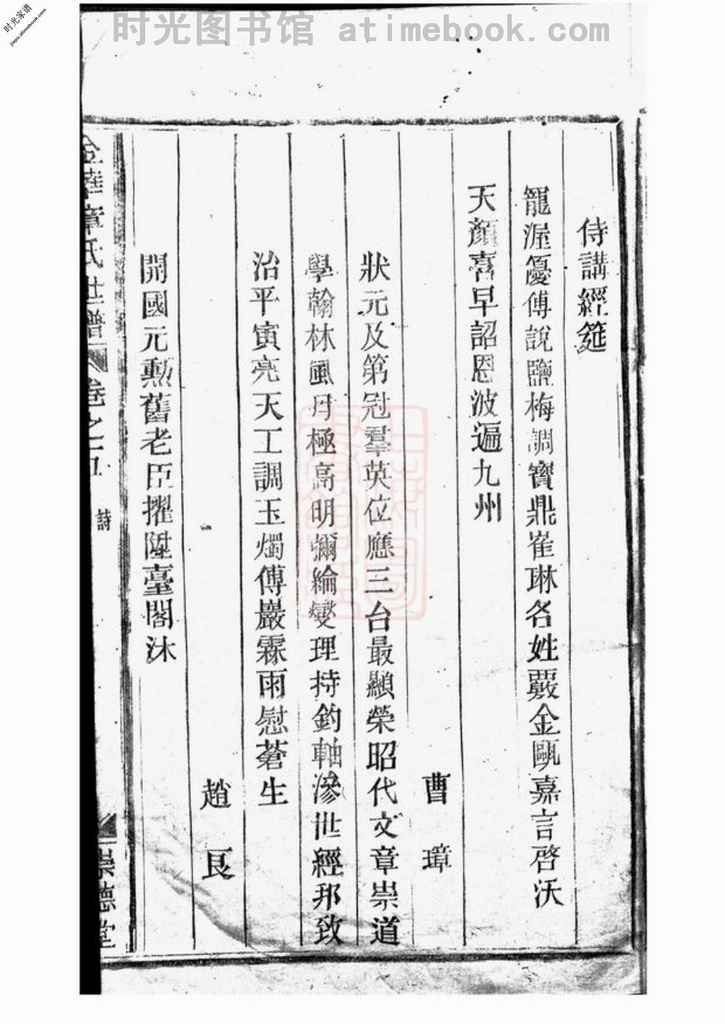 时光图书馆 atimebook.com
时光家谱
侍講經筵
寵渥優傅說鹽梅調寶鼎崔琳名姓覆金甌嘉言啓沃
天顏喜早詔恩波遍九州
曹璋
狀元及第冠羣英位應三台最顯榮昭代文章崇道
學翰林風月極高明彌綸燮理持鈞軸濟世經邦致
治平寅亮天工調玉燭傅巖霖雨慰蒼生
趙良
開國元勲舊老臣擢陞臺閣沐
金華章氏世譜 卷之五 詩 崇德堂